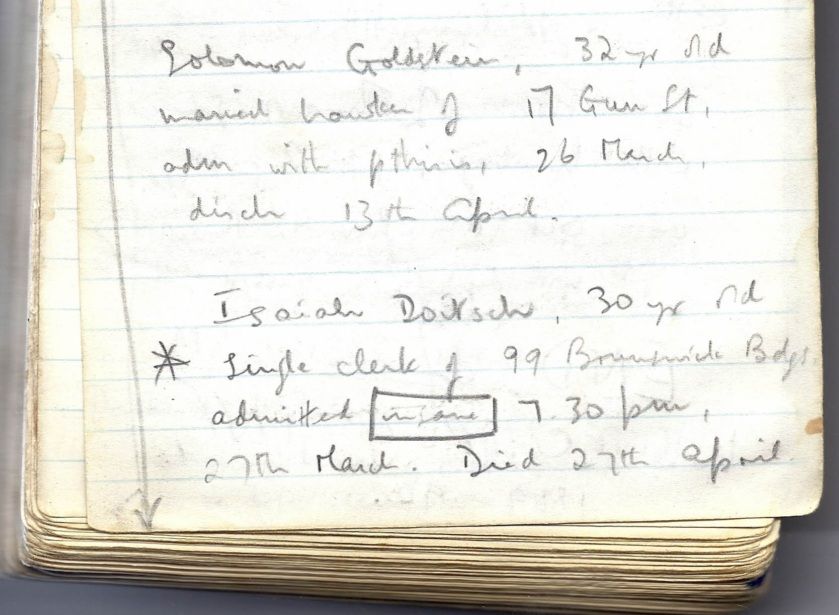 Solomon Goldstein, 32 yr old
married hawker of 17 Gun St,
adm with pthisis, 26 March,
disch 13th April.
Isaiah Doitsch, 30 yr old
* Single clerk of 99 Brunswick Bdgs.
admitted insane 7.30 pm,
27th March. Died 27th April.